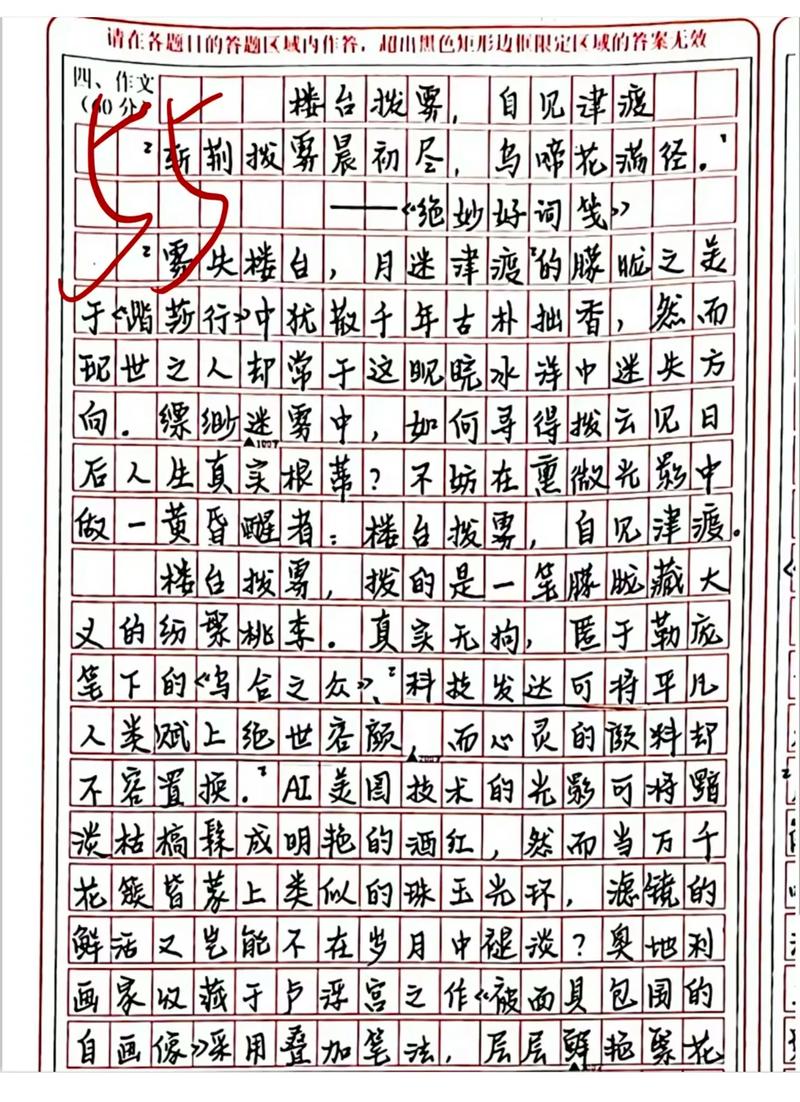 请在各题目的答题区域内作答,超出黑色矩形边框限定区域的答案无效
四、作文
(60分)
55
楼台拨雾,自见津渡
“斩荆拨雾晨初尽,鸟啼花满径.”
——《绝妙好词笺》
“雾失楼台,月迷津渡”的朦胧之美
于《踏莎行》中犹散千年古朴拙香,然而
现世之人却常于这昵晥水洋中迷失方
向.缥缈迷雾中,如何寻得拨云见日
▲100字
后人生真实根蒂?不妨在熏微光影中
做一黄昏醒者:楼台拨雾,自见津渡。
楼台拨雾,拨的是一笔朦胧藏大
义的纷繁桃李.真实无拘,匿于勒庞
笔下的《乌合之众》、“科技发达可将平凡
人类赋上绝世容颜,而心灵的颜料却
▲200字
不容置换.”AI美图技术的光影可将黯
淡枯槁髹成明艳的酒红,然而当万千
花簇皆蒙上类似的珠玉光环,滤镜的
鲜活又岂能不在岁月中褪淡?奥地利
画家收藏于卢浮宫之作《被面具包围的
自画像》采用叠加笔法,层层鲜艳繁花